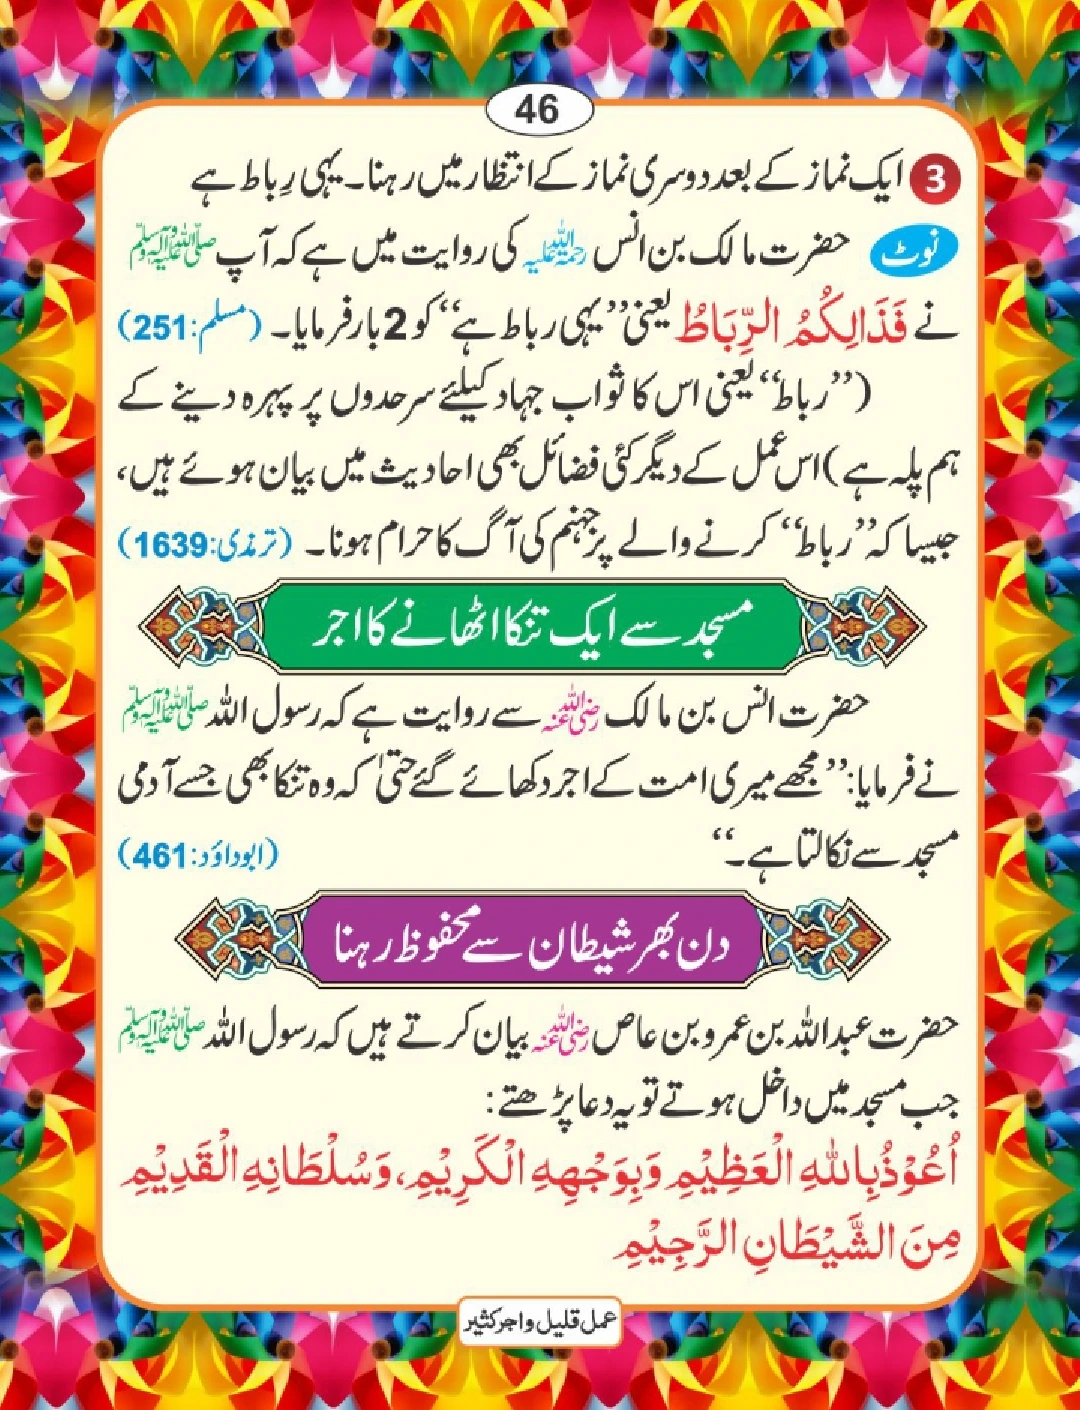 46
3 ایک نماز کے بعد دوسری نماز کے انتظار میں رہنا۔ یہی رِباط ہے
نوٹ حضرت مالک بن انس رحمۃ اللہ علیہ کی روایت میں ہے کہ آپ صلی اللہ علیہ وآلہ وسلم
نے فَذَالِكُمُ الرِّبَاطُ یعنی ”یہی رباط ہے“ کو 2 بار فرمایا۔ (مسلم:251)
(”رباط“ یعنی اس کا ثواب جہاد کیلئے سرحدوں پر پہرہ دینے کے
ہم پلہ ہے) اس عمل کے دیگر کئی فضائل بھی احادیث میں بیان ہوئے ہیں،
جیسا کہ ”رباط“ کرنے والے پر جہنم کی آگ کا حرام ہونا۔ (ترمذی:1639)
مسجد سے ایک تنکا اٹھانے کا اجر
حضرت انس بن مالک رضی اللہ عنہ سے روایت ہے کہ رسول اللہ صلی اللہ علیہ وآلہ وسلم
نے فرمایا: ”مجھے میری امت کے اجر دکھائے گئے حتیٰ کہ وہ تنکا بھی جسے آدمی
مسجد سے نکالتا ہے۔“ (ابوداؤد:461)
دن بھر شیطان سے محفوظ رہنا
حضرت عبداللہ بن عمرو بن عاص رضی اللہ عنہ بیان کرتے ہیں کہ رسول اللہ صلی اللہ علیہ وآلہ وسلم
جب مسجد میں داخل ہوتے تو یہ دعا پڑھتے:
اُعُوْذُبِاللهِ الْعَظِيْمِ وَبِوَجْهِهِ الْكَرِيْمِ، وَسُلْطَانِهِ الْقَدِيْمِ
مِنَ الشَّيْطَانِ الرَّجِيْمِ
عمل قلیل و اجر کثیر